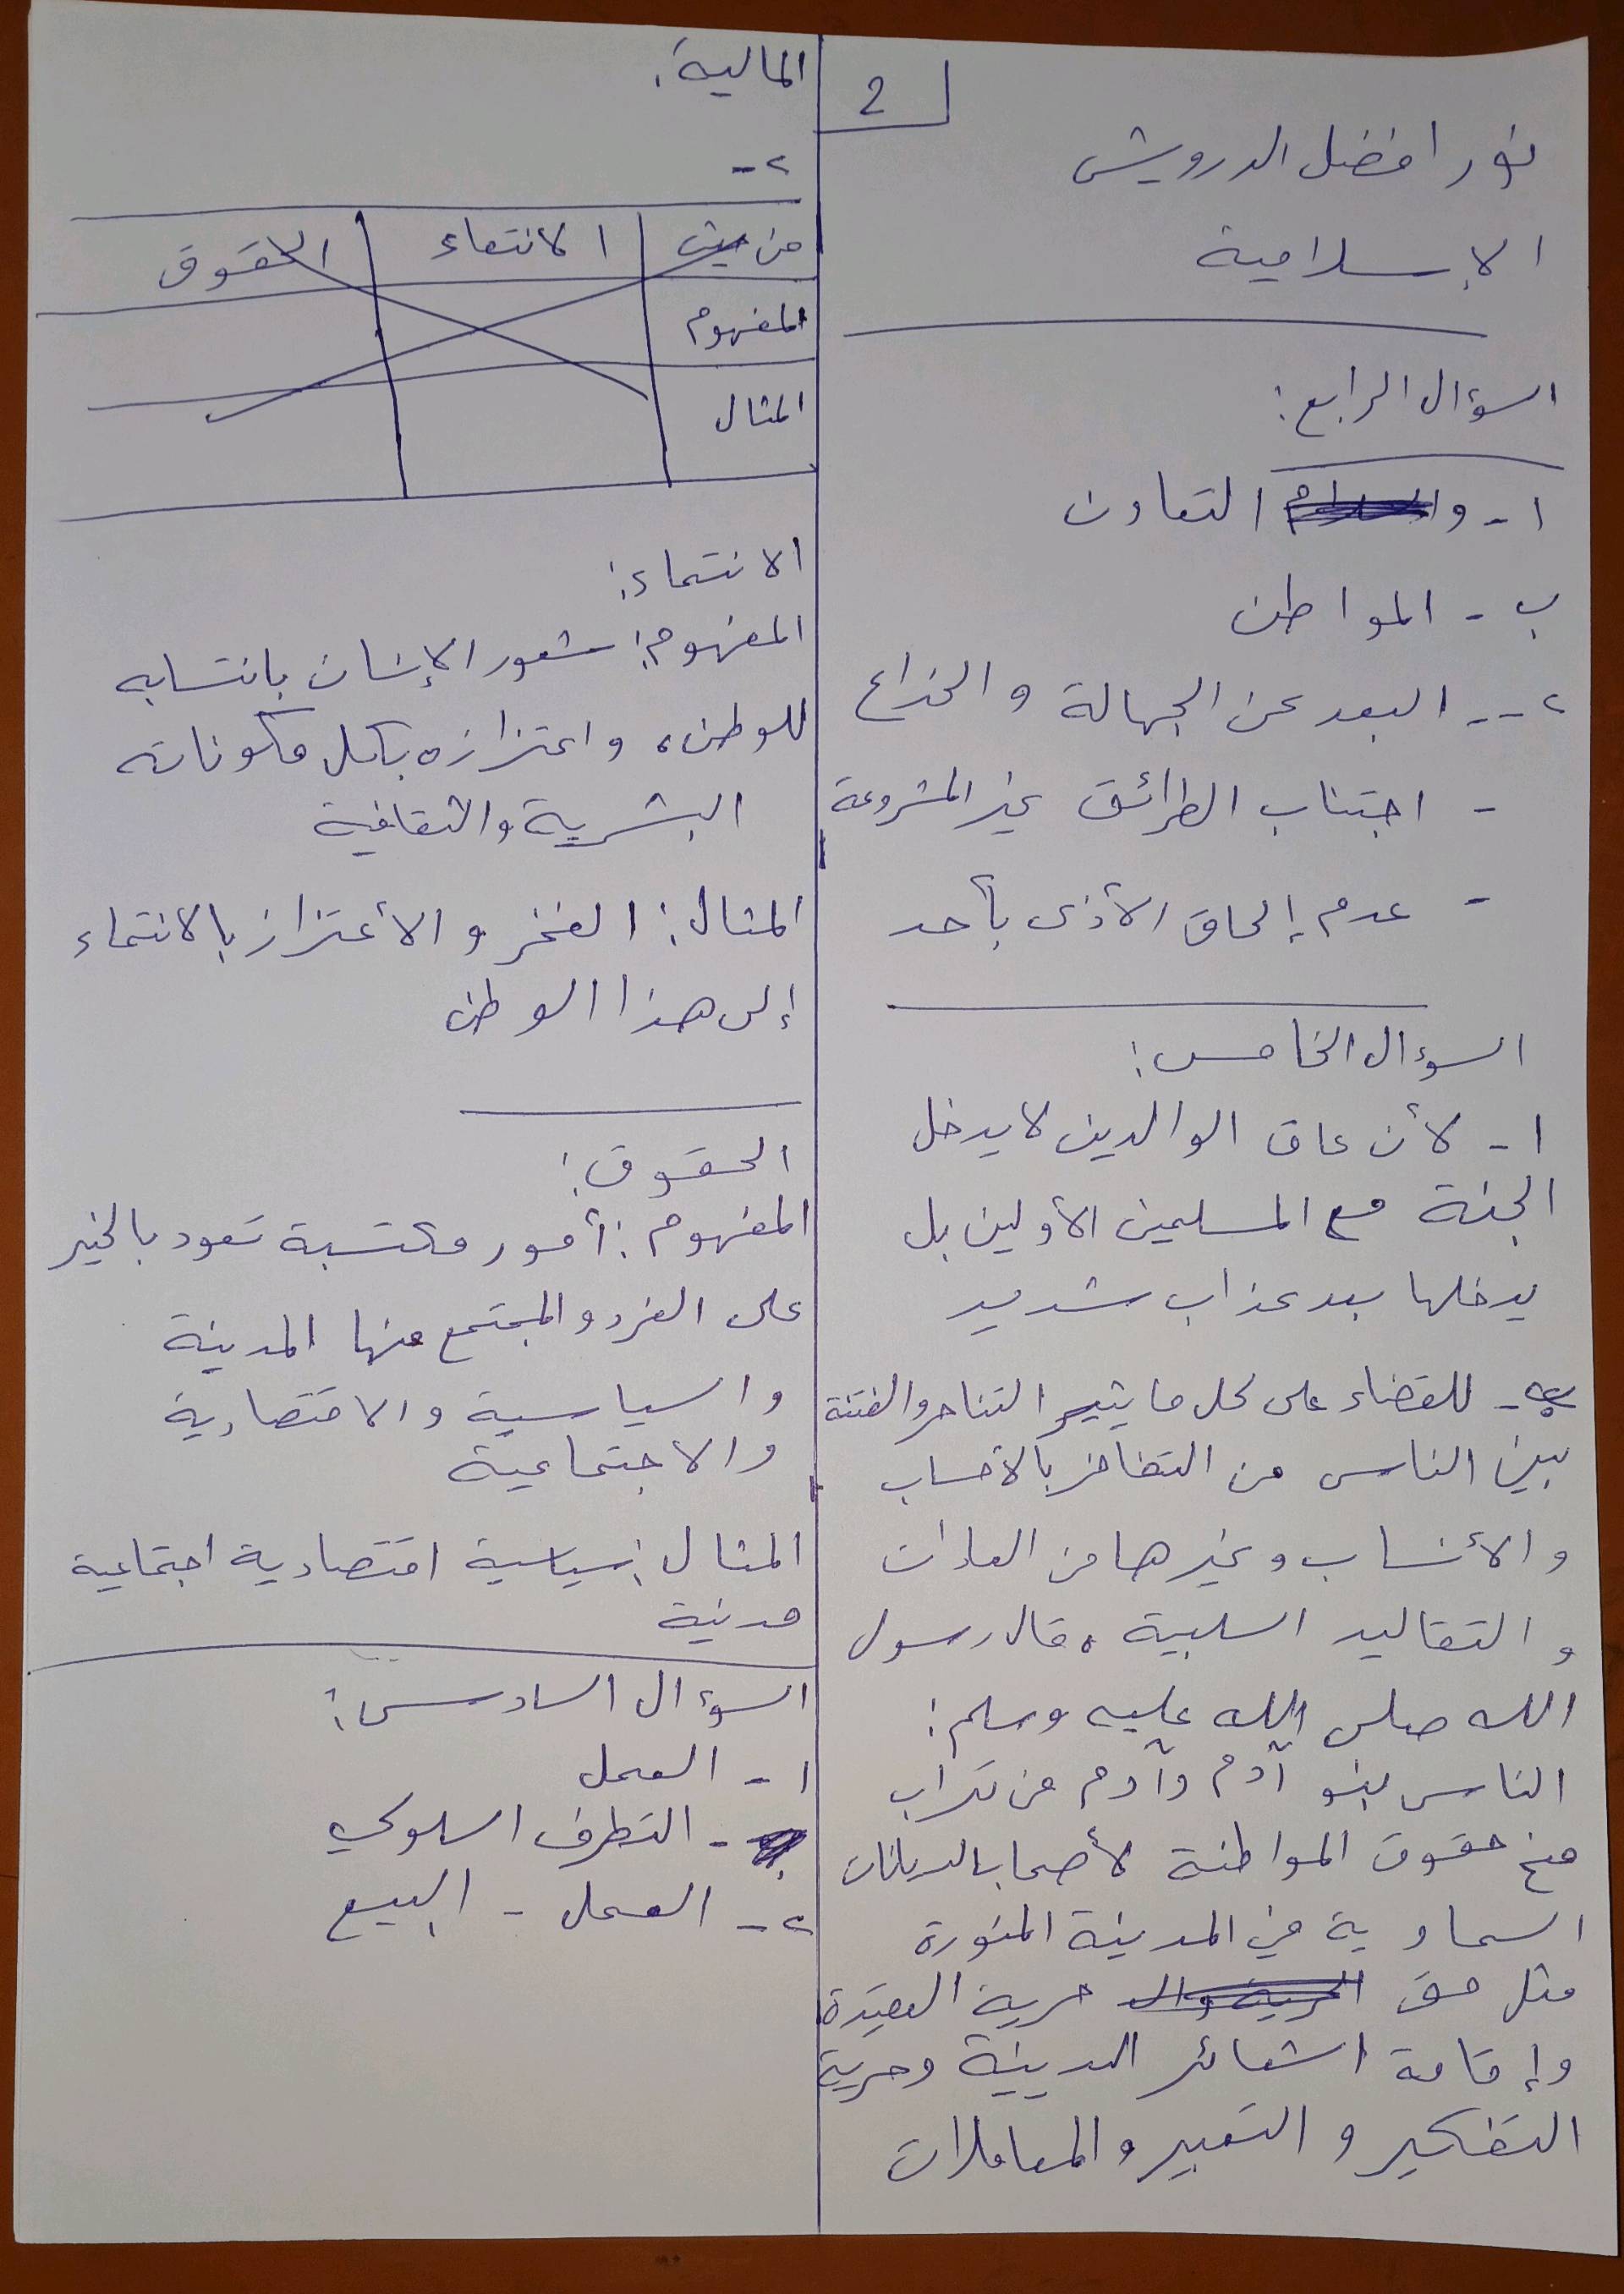 2
نور افضل الدرويش
الإسلامية
السؤال الرابع:
١- و التعاون
ب - المواطن
٢-- البعد عن الجهالة و الخداع
- اجتناب الطرائق غير المشروعة
- عدم إلحاق الأذى بأحد
السؤال الخامس:
١- لأن عاق الوالدين لا يدخل
الجنة مع المسلمين الأولين بل
يدخلها بعد عذاب شديد
- للقضاء على كل ما يثير التناحر والفتنة
بين الناس من التفاخر بالأحساب
والأنساب وغيرها من العادات
والتقاليد السلبية، قال رسول
الله صلى الله عليه وسلم:
الناس بنو آدم وآدم من تراب
منح حقوق المواطنة لأصحاب الديانات
السماوية في المدينة المنورة
مثل حق حرية العقيدة
وإقامة الشعائر الدينية وحرية
التفكير والتعبير والمعاملات
المالية.
٢-
من حيث الانتماء الحقوق
المفهوم
المثال
الانتماء:
المفهوم: شعور الإنسان بانتسابه
للوطن، واعتزازه بكل مكوناته
البشرية والثقافية
المثال: الفخر و الأعتزاز بالانتماء
إلى هذا الوطن
الحقوق:
المفهوم: أمور مكتسبة تعود بالخير
على الفرد والمجتمع منها المدينة
والسياسية والاقتصادية
والاجتماعية
المثال: سياسية اقتصادية اجتماعية
مدنية
السؤال السادس:
١- العمل
ب- التطرف السلوكي
٢- العمل - البيع